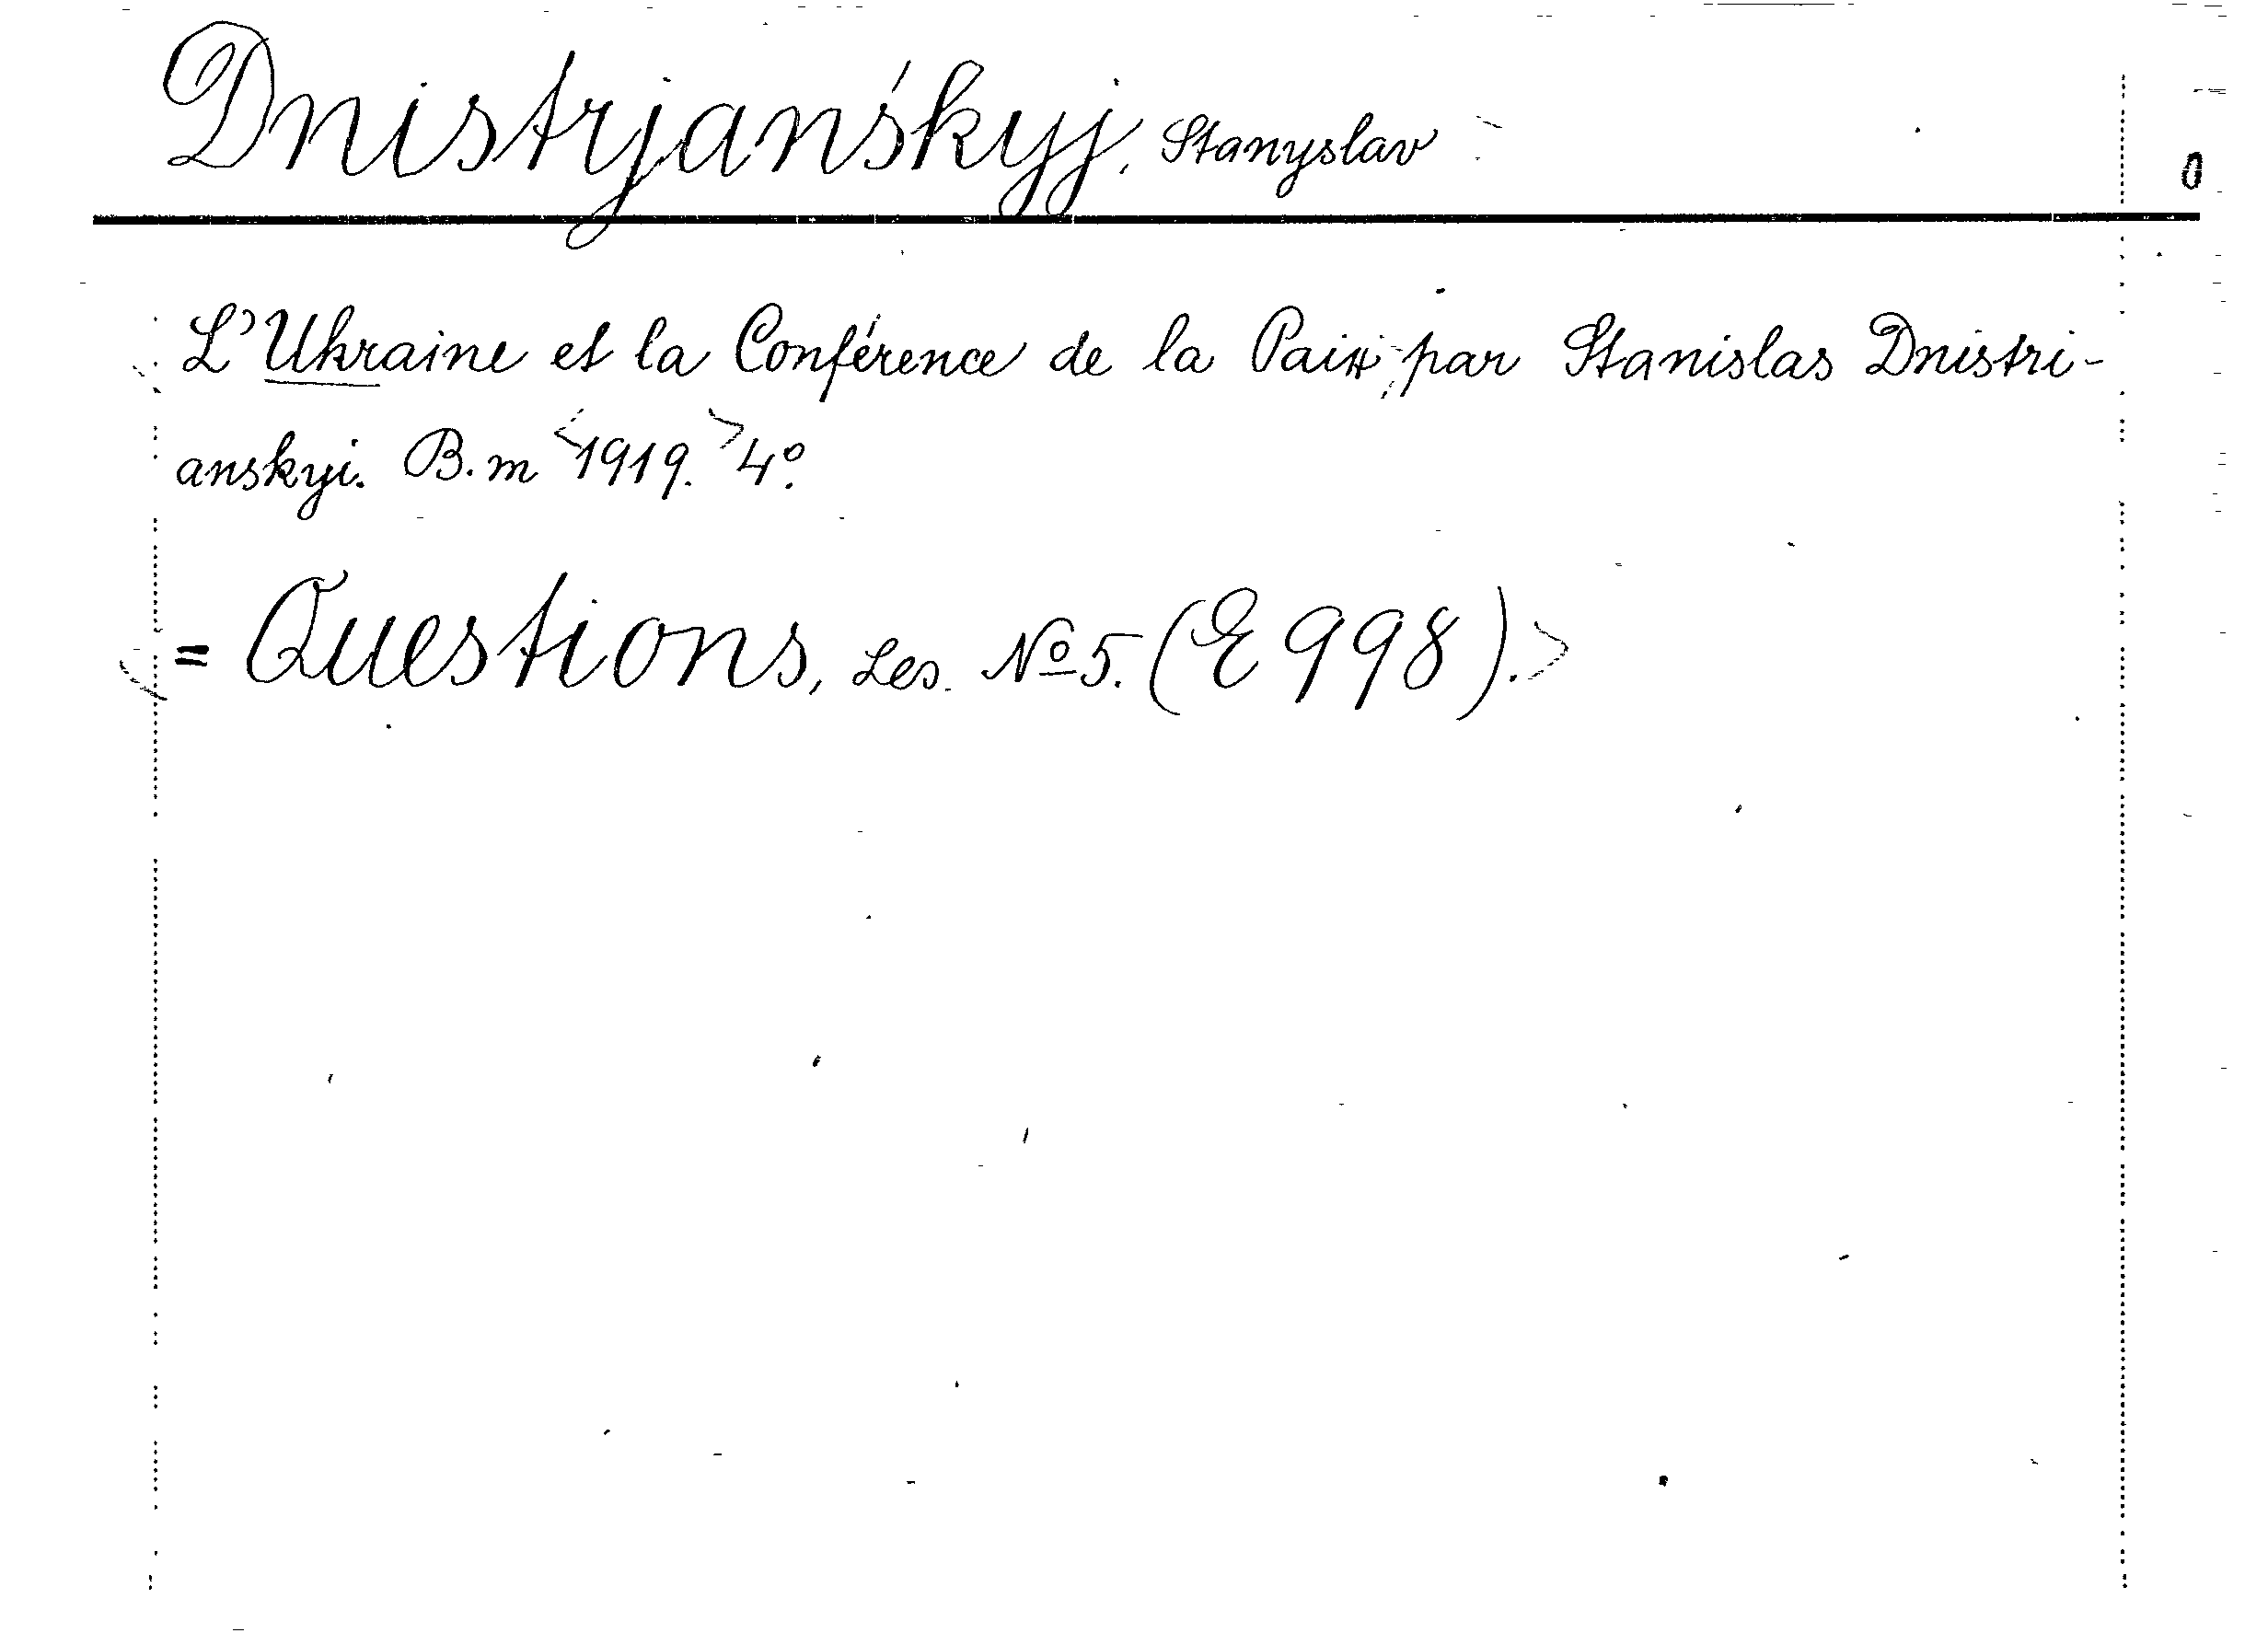 Dnistrjanśkyj, Stanyslav
0
L'Ukraine et la Conférence de la Paix, par Stanislas Dnistri-
anskyi. B.m <1919.> 4º.
<= Questions, Les. Nº 5. (E 998).>